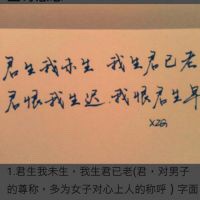 君生我未生 我生君已老
君恨我生迟.我恨君生早
XZG
1.君生我未生，我生君已老(君，对男子
的尊称，多为女子对心上人的称呼）字面